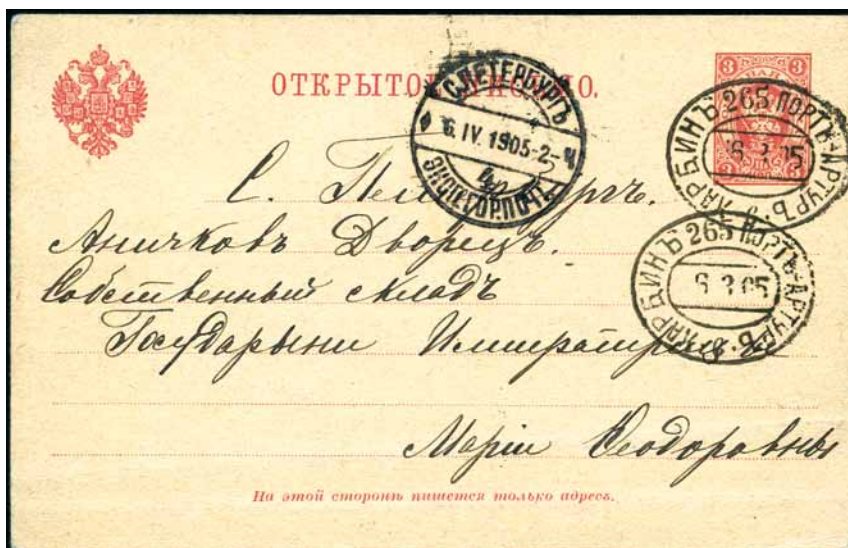 ОТКРЫТОЕ ПИСЬМО.
3 3
С.ПЕТЕРБУРГЪ
6.IV.1905-2-Ч
ЭКСП.ГОР.ПОЧТ.
ХАРБИНЪ 265 ПОРТЪ-АРТУРЪ
6 3 05
ХАРБИНЪ 265 ПОРТЪ-АРТУРЪ
6 3 05
С. Петербургъ.
Аничковъ Дворецъ.
Собственный складъ
Государыни Императрицы
Маріи Ѳеодоровны
На этой сторонѣ пишется только адресъ.